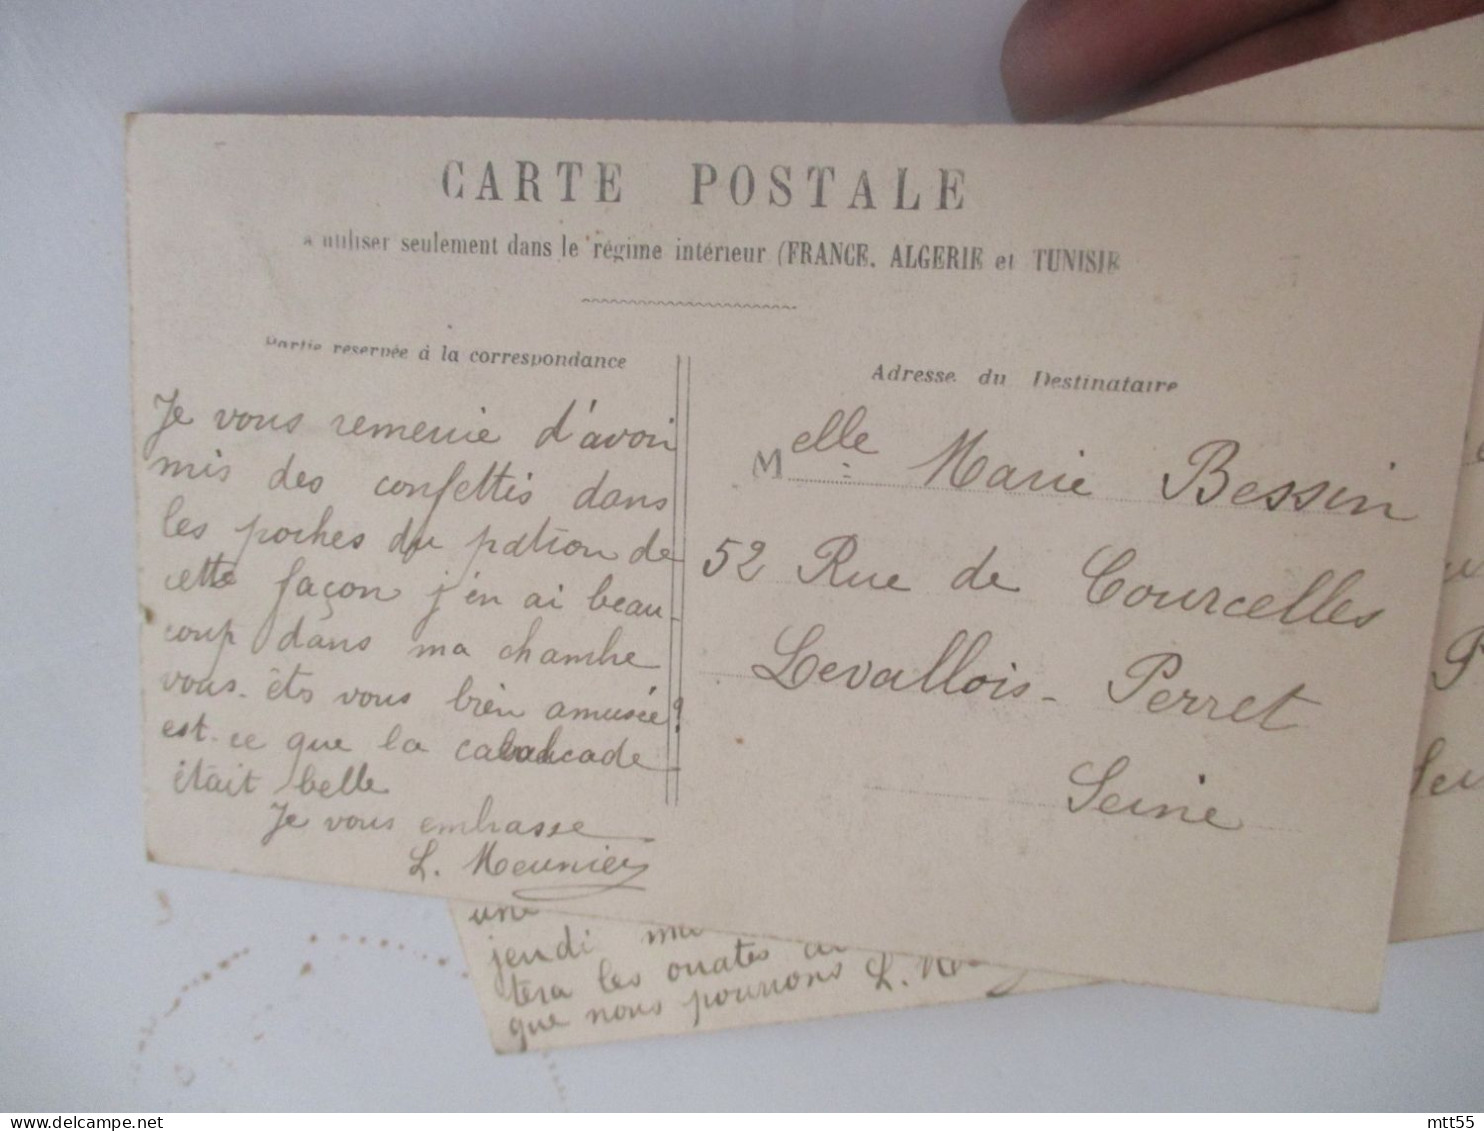 CARTE POSTALE
à utiliser seulement dans le régime intérieur (FRANCE, ALGERIE et TUNISIE
Partie reservée à la correspondance
Je vous remercie d'avoir
mis des confettis dans
les poches du patron de
cette façon j'en ai beau-
coup dans ma chambre
vous-êts vous bien amusée?
est-ce que la cavalcade
était belle
Je vous embrasse
L. Meunier
Adresse du Destinataire
Melle Marie Bessin
52 Rue de Courcelles
Levallois-Perret
Seine
une
jendi
tera les
que nous pourrons L.
mtt55